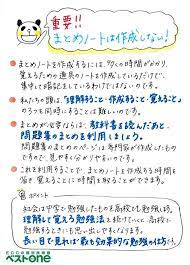 重要!!
まとめノートは作成しない！
まとめノートを作成するには、多くの時間がかかり、
覚えるための道具のノートを作成しているだけで、
集中して暗記をしているわけではありません。
私たちの頭は、「理解すること・作成すること・覚えること」
のうちを同時にすることは難しいのです。
まとめが必要ならば、教科書を読んだあと、
問題集のまとめを利用しましょう。
問題集のまとめのほうが、専門家が作成したもの
ですので、見やすく分かりやすいもの
これを利用することで、まとめノートを作成する時間を
省き、覚えることに時間を取ることができます。
ポイント
社会は中学で勉強したものを高校でも勉強します。
理解して覚える勉強法を続けていくと、高校に
勉強するときにも思い出しやすくなります。
長い目で見れば最も効果的な勉強の仕方です。
ベストone